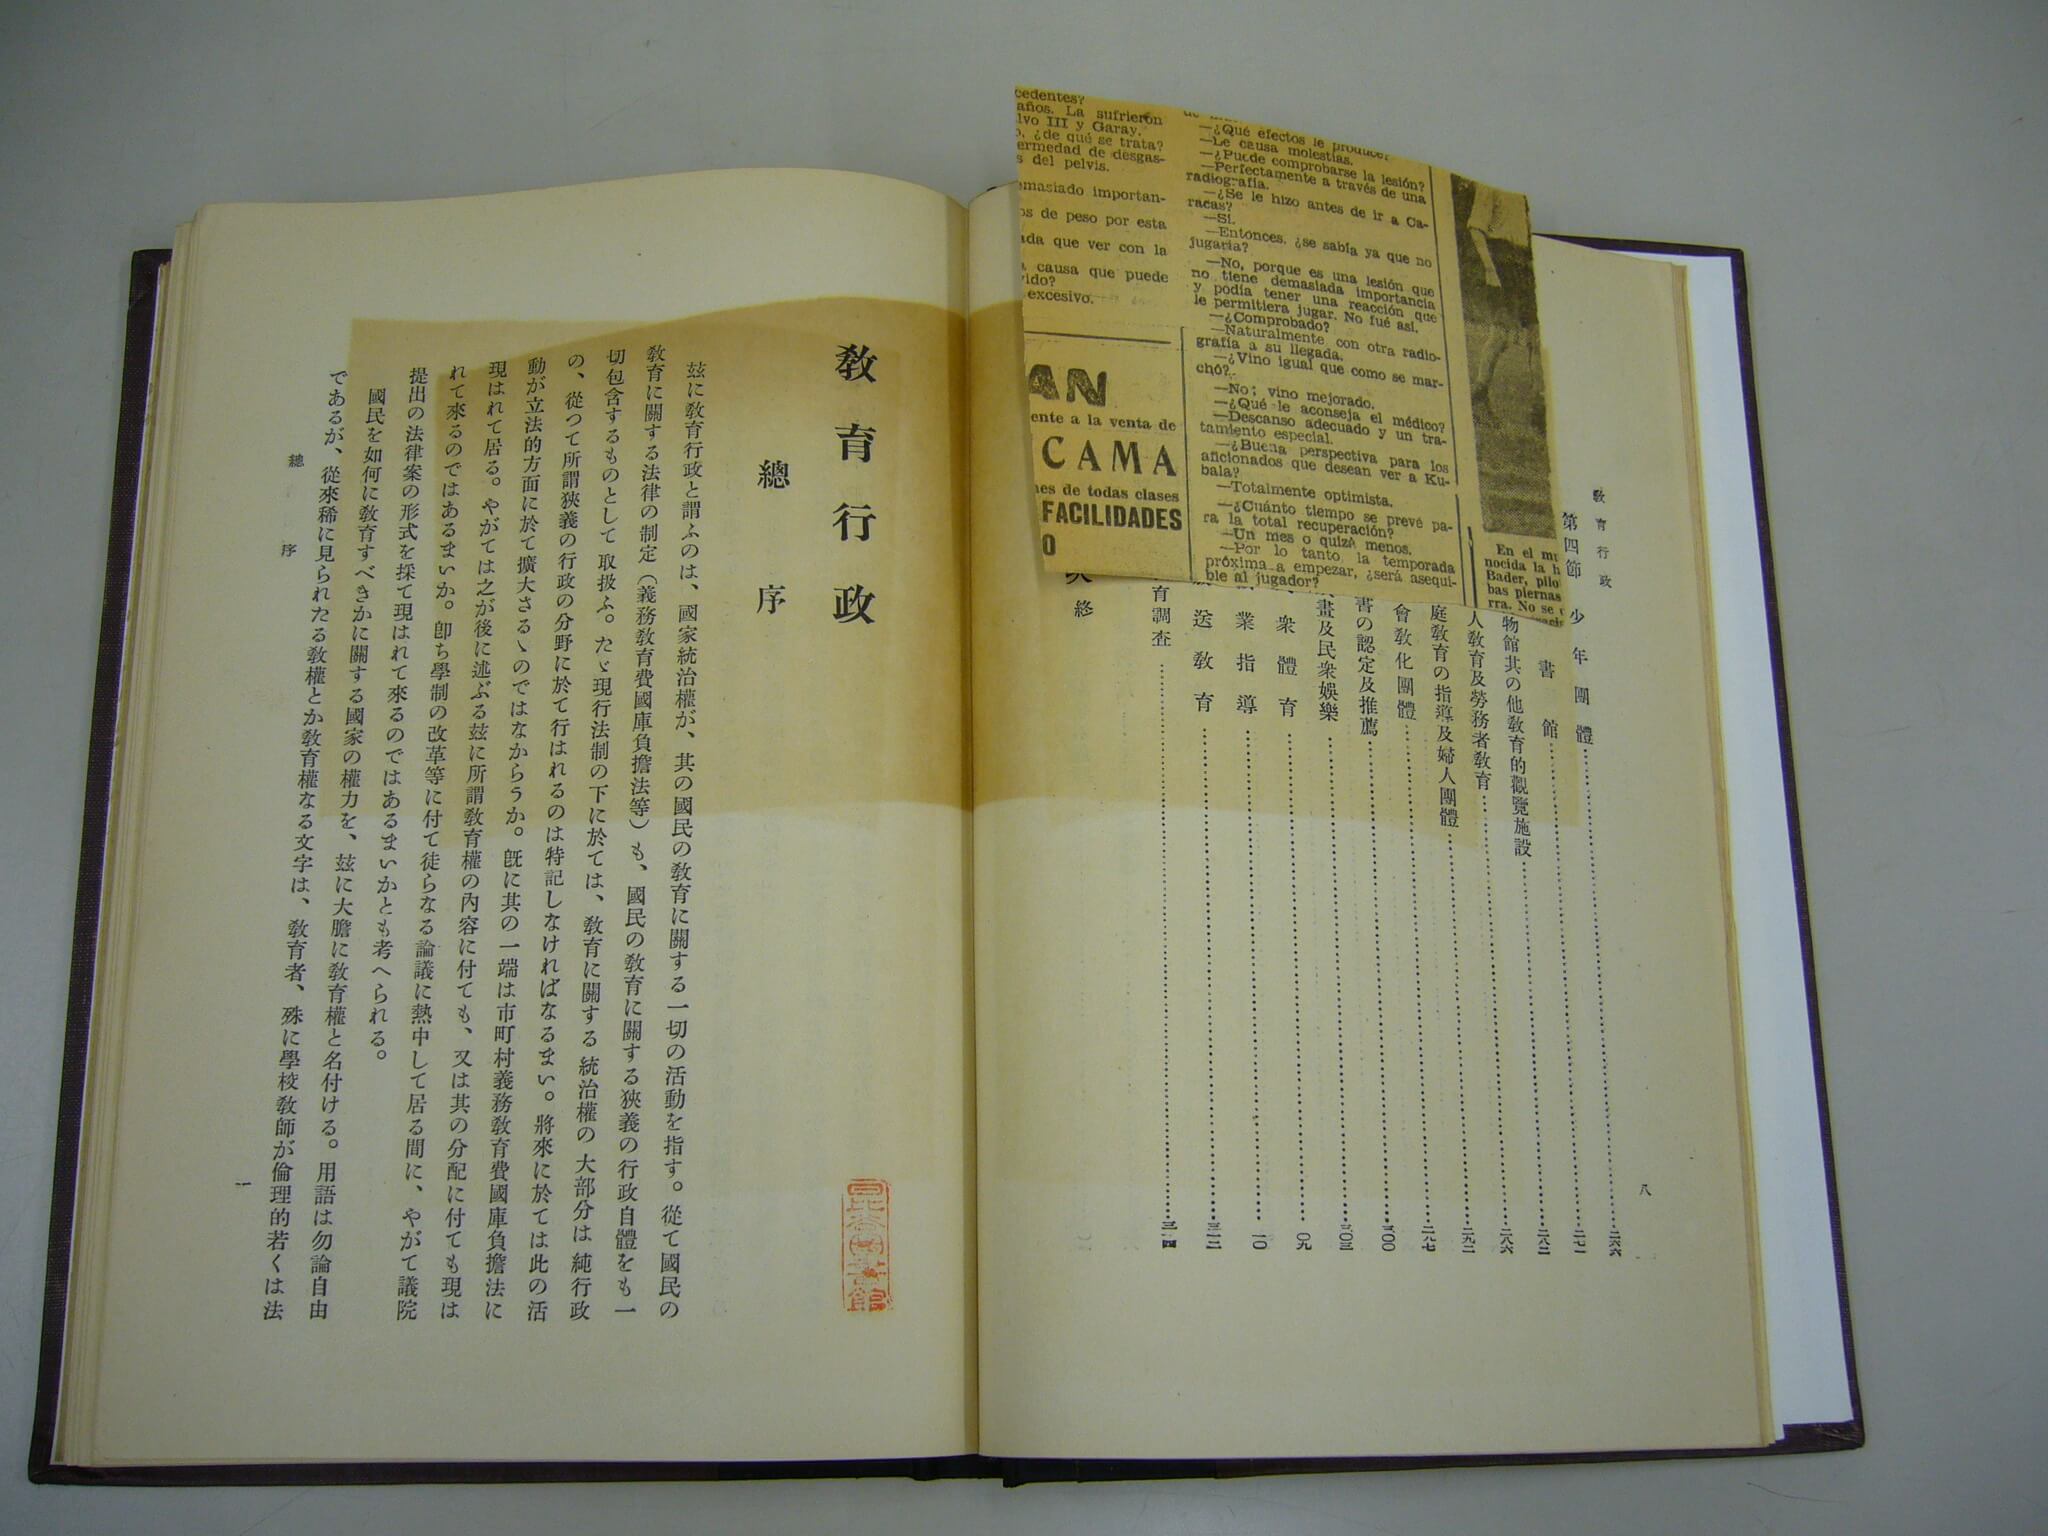 cedentes?
años. La sufrieron
lvo III y Garay.
o, ¿de qué se trata?
ermedad de desgas-
s del pelvis.
emasiado importan-
os de peso por esta
ada que ver con la
causa que puede
vido?
excesivo.
AN
ente a la venta de
CAMA
nes de todas clases
FACILIDADES
O
—¿Qué efectos le produce?
—Le causa molestias.
—¿Puede comprobarse la lesión?
—Perfectamente a través de una
radiografía.
—¿Se le hizo antes de ir a Ca-
racas?
—Sí.
—Entonces, ¿se sabía ya que no
jugaría?
—No, porque es una lesión que
no tiene demasiada importancia
y podía tener una reacción que
le permitiera jugar. No fué así.
—¿Comprobado?
—Naturalmente con otra radio-
grafía a su llegada.
—¿Vino igual que como se mar-
chó?
—No; vino mejorado.
—¿Qué le aconseja el médico?
—Descanso adecuado y un tra-
tamiento especial.
—¿Buena perspectiva para los
aficionados que desean ver a Ku-
bala?
—Totalmente optimista.
—¿Cuánto tiempo se prevé pa-
ra la total recuperación?
—Un mes o quizá menos.
—Por lo tanto, la temporada
próxima a empezar, ¿será asequi-
ble al jugador?
En el mu
nocida la h
Bader, pilo
bas piernas
rra. No se
教育行政
八
第四節 少年團體 二六六
書館 二七一
物館其の他教育的觀覽施設 二八二
人教育及勞務者教育 二八六
庭教育の指導及婦人團體 二九二
會教化團體 二九七
書の認定及推薦 三〇〇
畫及民衆娯樂 三〇三
衆體育 三〇九
業指導 三一〇
送教育 三一二
育調査 三一四
終
教育行政
總序
玆に教育行政と謂ふのは、國家統治權が、其の國民の教育に關する一切の活動を指す。從て國民の
教育に關する法律の制定（義務教育費國庫負擔法等）も、國民の教育に關する狹義の行政自體をも一
切包含するものとして取扱ふ。たゞ現行法制の下に於ては、教育に關する統治權の大部分は純行政
の、從つて所謂狹義の行政の分野に於て行はれるのは特記しなければなるまい。將來に於ては此の活
動が立法的方面に於て擴大さるゝのではなからうか。旣に其の一端は市町村義務教育費國庫負擔法に
現はれて居る。やがては之が後に述ぶる玆に所謂教育權の內容に付ても、又は其の分配に付ても現は
れて來るのではあるまいか。卽ち學制の改革等に付て徒らなる論議に熱中して居る間に、やがて議院
提出の法律案の形式を採て現はれて來るのではあるまいかとも考へられる。
國民を如何に教育すべきかに關する國家の權力を、玆に大膽に教育權と名付ける。用語は勿論自由
であるが、從來稀に見られたる教權とか教育權なる文字は、教育者、殊に學校教師が倫理的若くは法
總序
一
日比谷圖書館